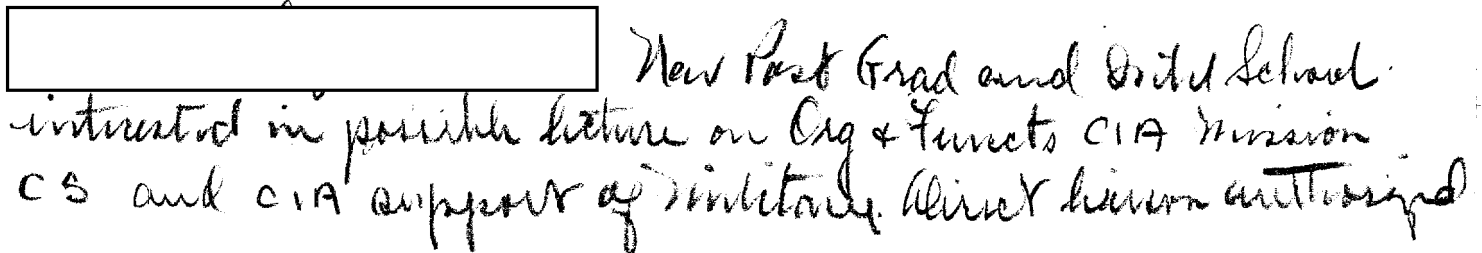 Nav Post Grad and Intel School
interested in possible lecture on Org & Functs CIA Mission
CS and CIA support of military. Direct liaison authorized